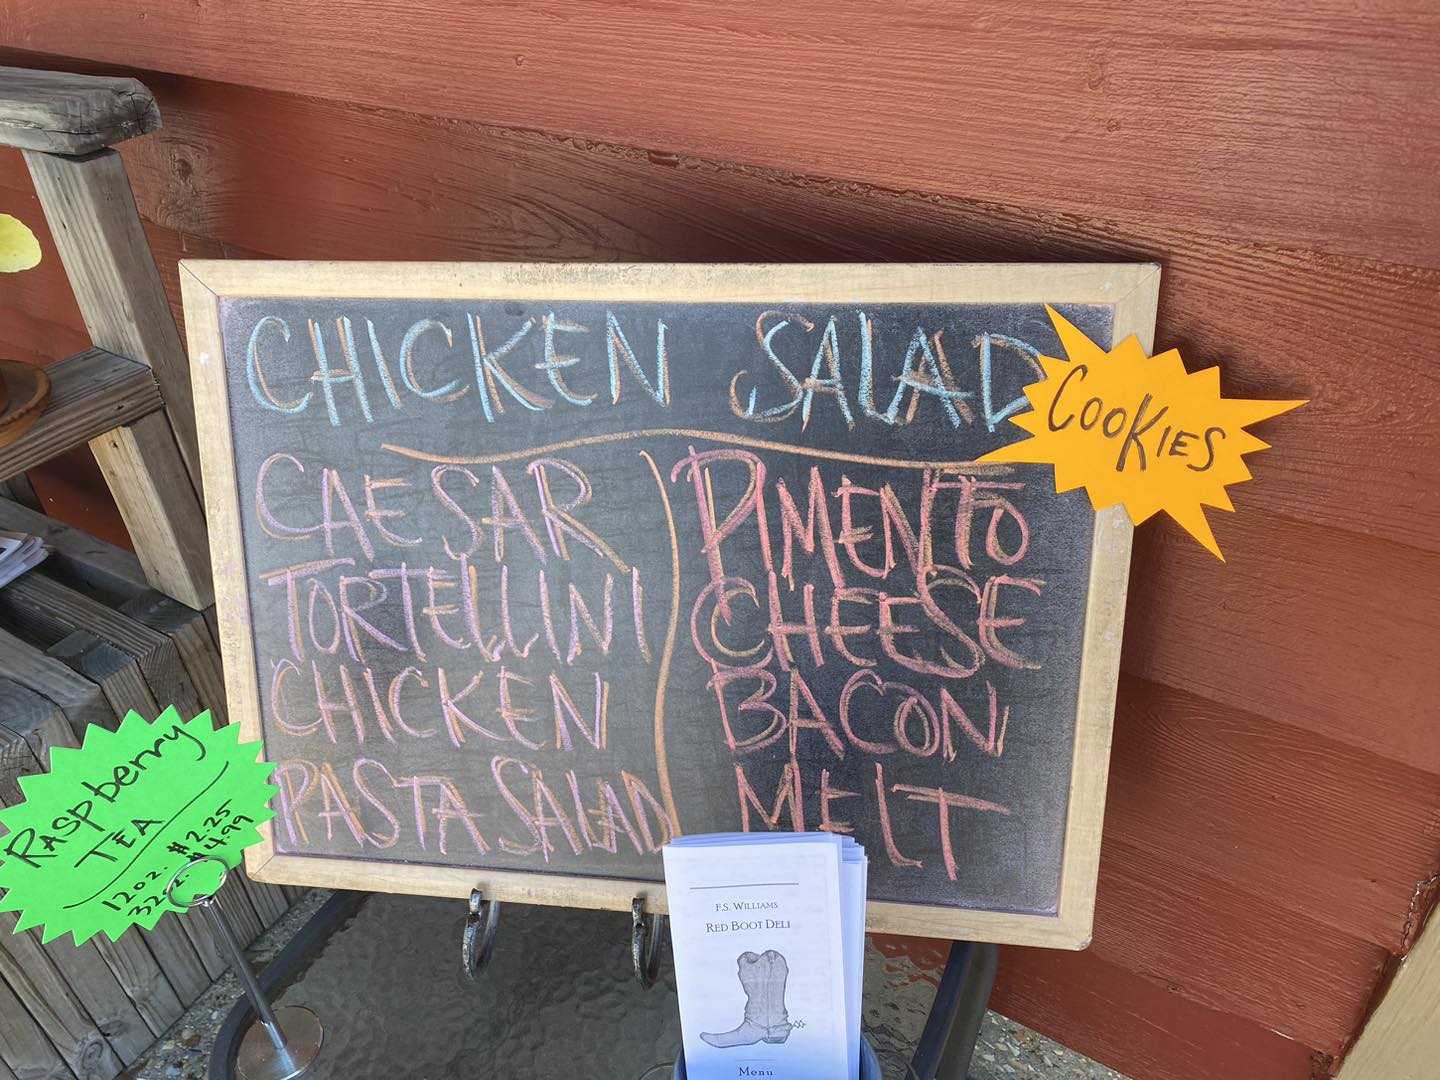 CHICKEN SALAD
COOKIES
CAESAR
TORTELLINI
CHICKEN
PASTA SALAD
PIMENTO
CHEESE
BACON
MELT
RASpberry
TEA
12oz. $2.25
32oz. $4.99
F.S. WILLIAMS
RED BOOT DELI
Menu